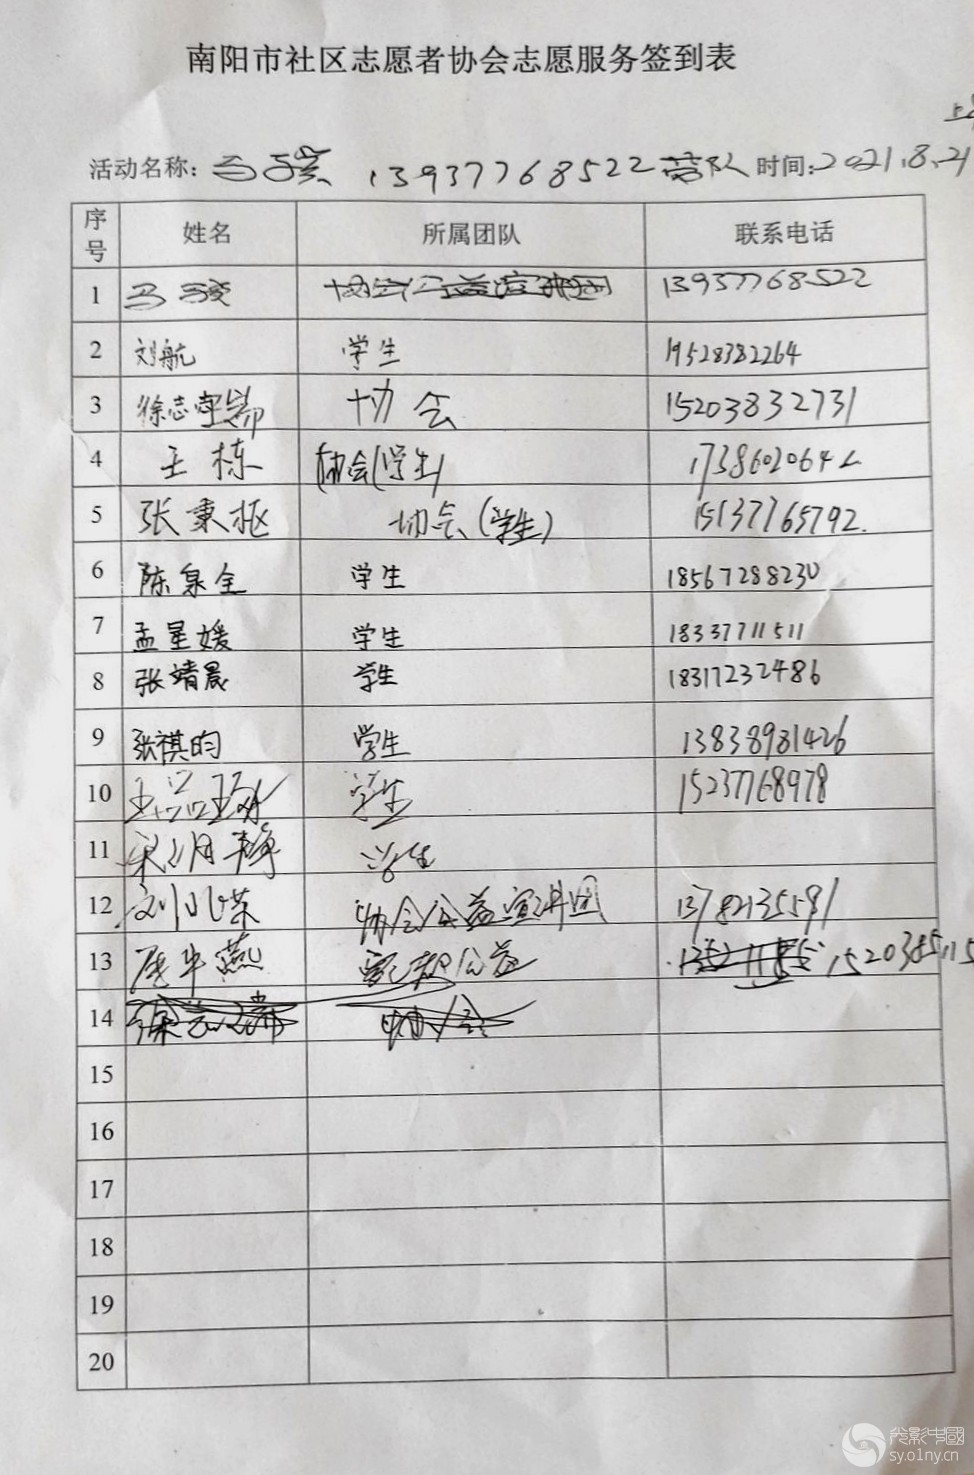 南阳市社区志愿者协会志愿服务签到表
上
活动名称: 13937768522 带队 时间:2021.8.21
序号 姓名 所属团队 联系电话
1 13937768522
2 刘航 学生 19528382264
3 徐志 协会 15203832731
4 王栋 协会(学生)
5 张秉枢 协会(学生) 15137765792.
6 陈泉全 学生 18567288230
7 孟星媛 学生 18337711511
8 张靖晨 学生 18317232486
9 张祺昀 学生 13838981426
10 学生 15237768978
11 学生
12 协会公益宣讲团 13782135591
13 公益
14
15
16
17
18
19
20
光影中國
sy.01ny.cn